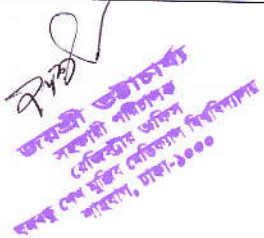 জয়শ্রী ভট্টাচার্য্য
সহকারী পরিচালক
রেজিস্ট্রার অফিস
বঙ্গবন্ধু শেখ মুজিব মেডিক্যাল বিশ্ববিদ্যালয়
শাহবাগ, ঢাকা-১০০০